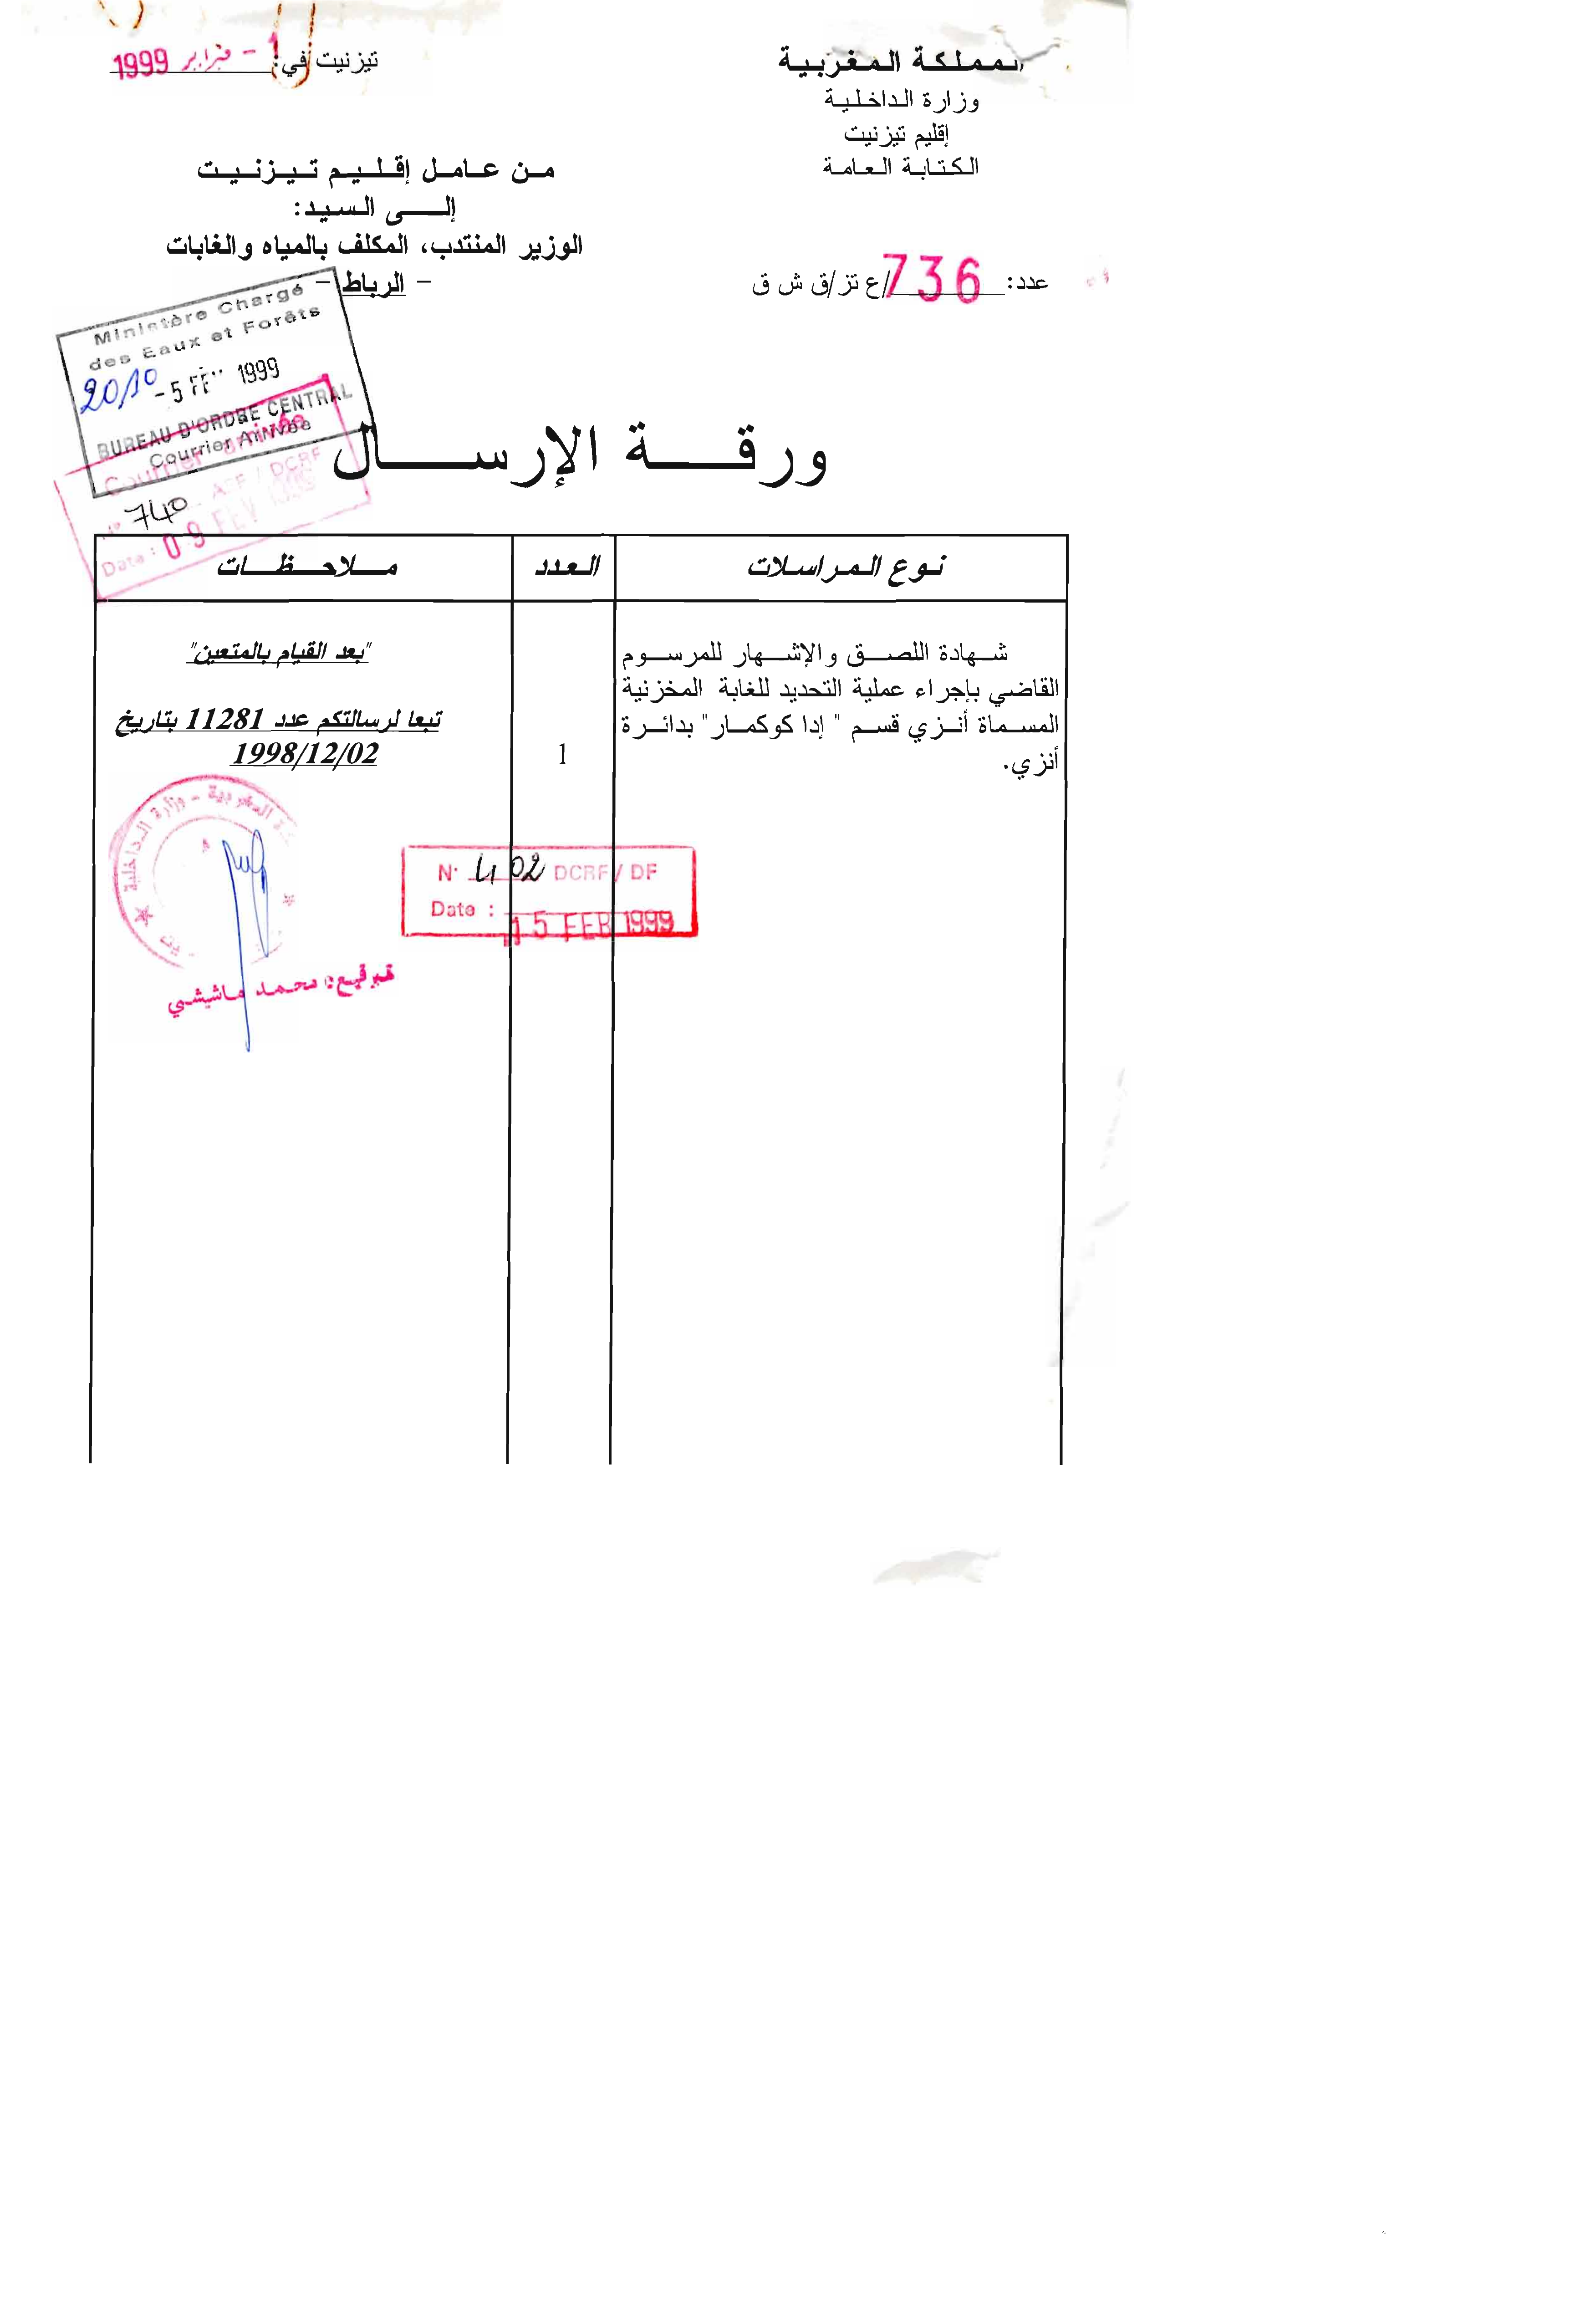 المملكة المغربية
وزارة الداخلية
إقليم تيزنيت
الكتابة العامة
عدد: 736/ع تز/ق ش ق
تيزنيت في: 1 - فبراير 1999
من عامل إقليم تيزنيت
إلى السيد:
الوزير المنتدب، المكلف بالمياه والغابات
- الرباط -
Ministère Chargé
des Eaux et Forêts
2010 - 5 1999
BUREAU D'ORDRE CENTRAL
Courrier Arrivée
Courrier arrivée
/ DCRF
N° 740
Date : 09 FEV
ورقة الإرسال
نوع المراسلات
العدد
ملاحظات
شهادة اللصق والإشهار للمرسوم
القاضي بإجراء عملية التحديد للغابة المخزنية
المسماة أنزي قسم " إدا كوكمار" بدائرة
أنزي.
1
"بعد القيام بالمتعين"
تبعا لرسالتكم عدد 11281 بتاريخ
1998/12/02
المغربية - وزارة الداخلية
N° 402 DCRF / DF
Date : 15 FEB 1999
محمد ماشيشي